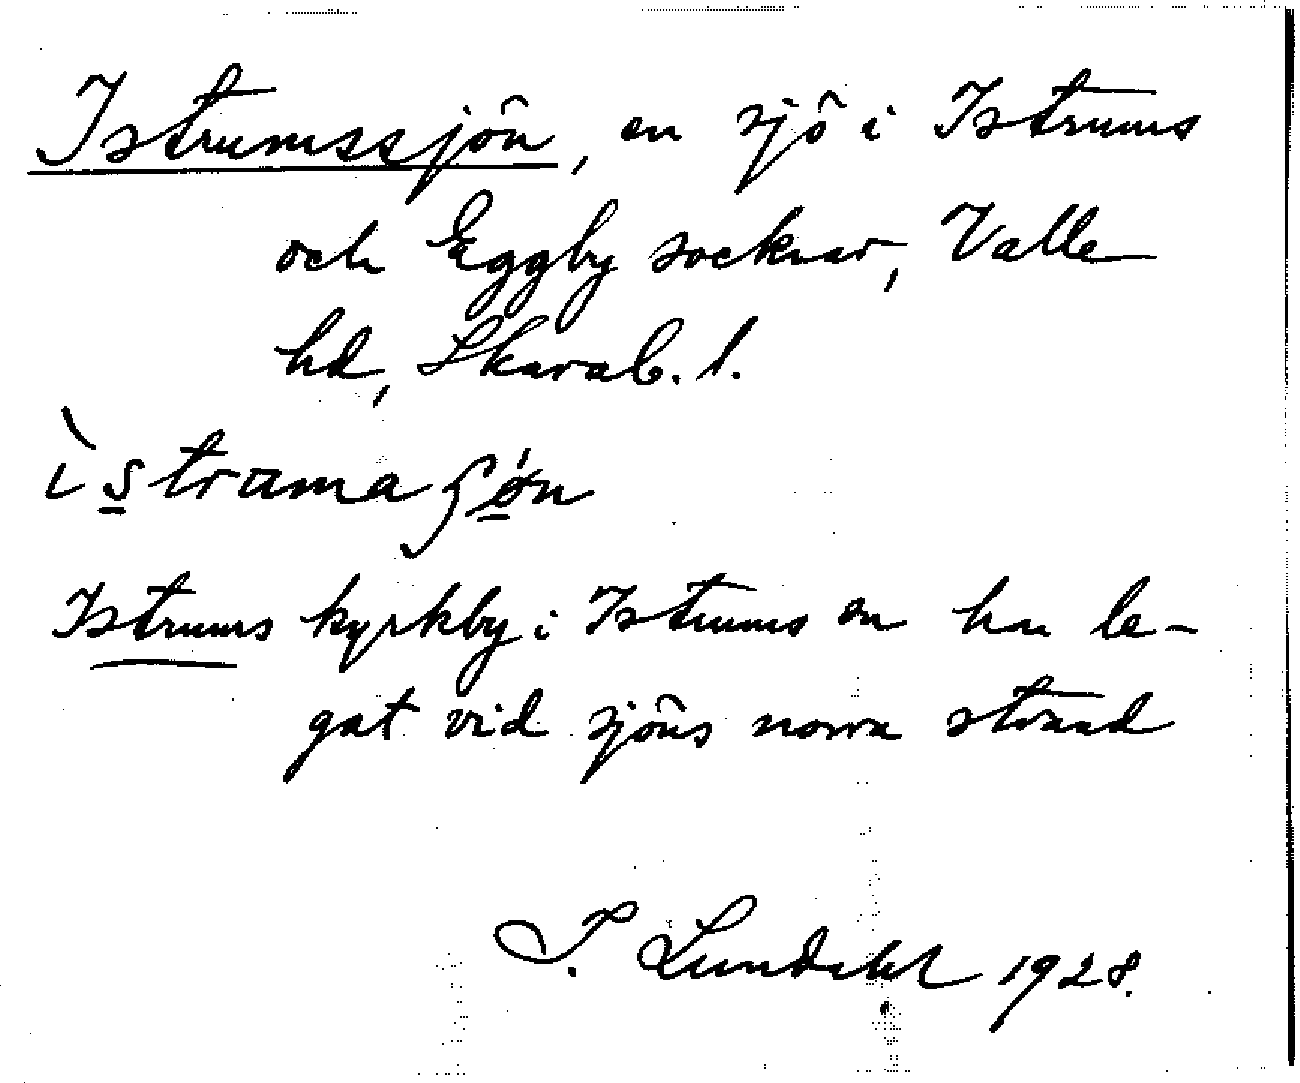 Istrumssjön, en sjö i Istrums
och Eggby socknar, Valle
hd, Skarab. l.
Istrums kyrkby i Istrums sn har le-
gat vid sjöns norra strand
I. Lundahl 1928.